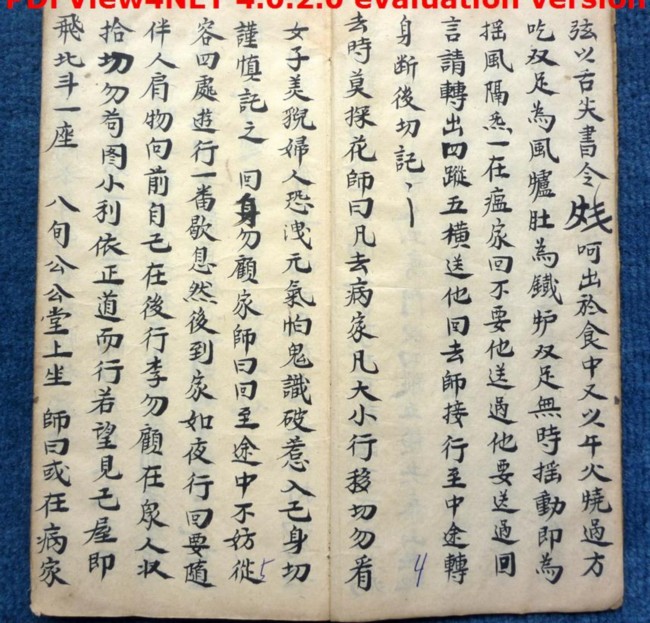 PDFView4NET 4.0.2.0 evaluation version
弦以舌尖書令 呵出於食中又以午火燒過方
吃双足為風爐肚為鐵炉双足無時揺動即為
揺風隔 一在瘟家回不要他送過他要送過回
言請轉出四蹤五横送他回去師接行至中途轉
身断後切記
去時莫採花師曰凡去病家凡大小行移切勿看
女子美貌婦人恐洩元氣怕鬼識破惹入己身切
謹慎記之 回身勿顧家師曰回至途中不妨從
容四處遊行一番歇息然後到家如夜行回要隨
伴人肩物向前自己在後行李勿顧在衆人以
拾切勿苟图小利依正道而行若望見己屋即
飛北斗一座 八旬公公堂上坐 師曰或在病家
4
5